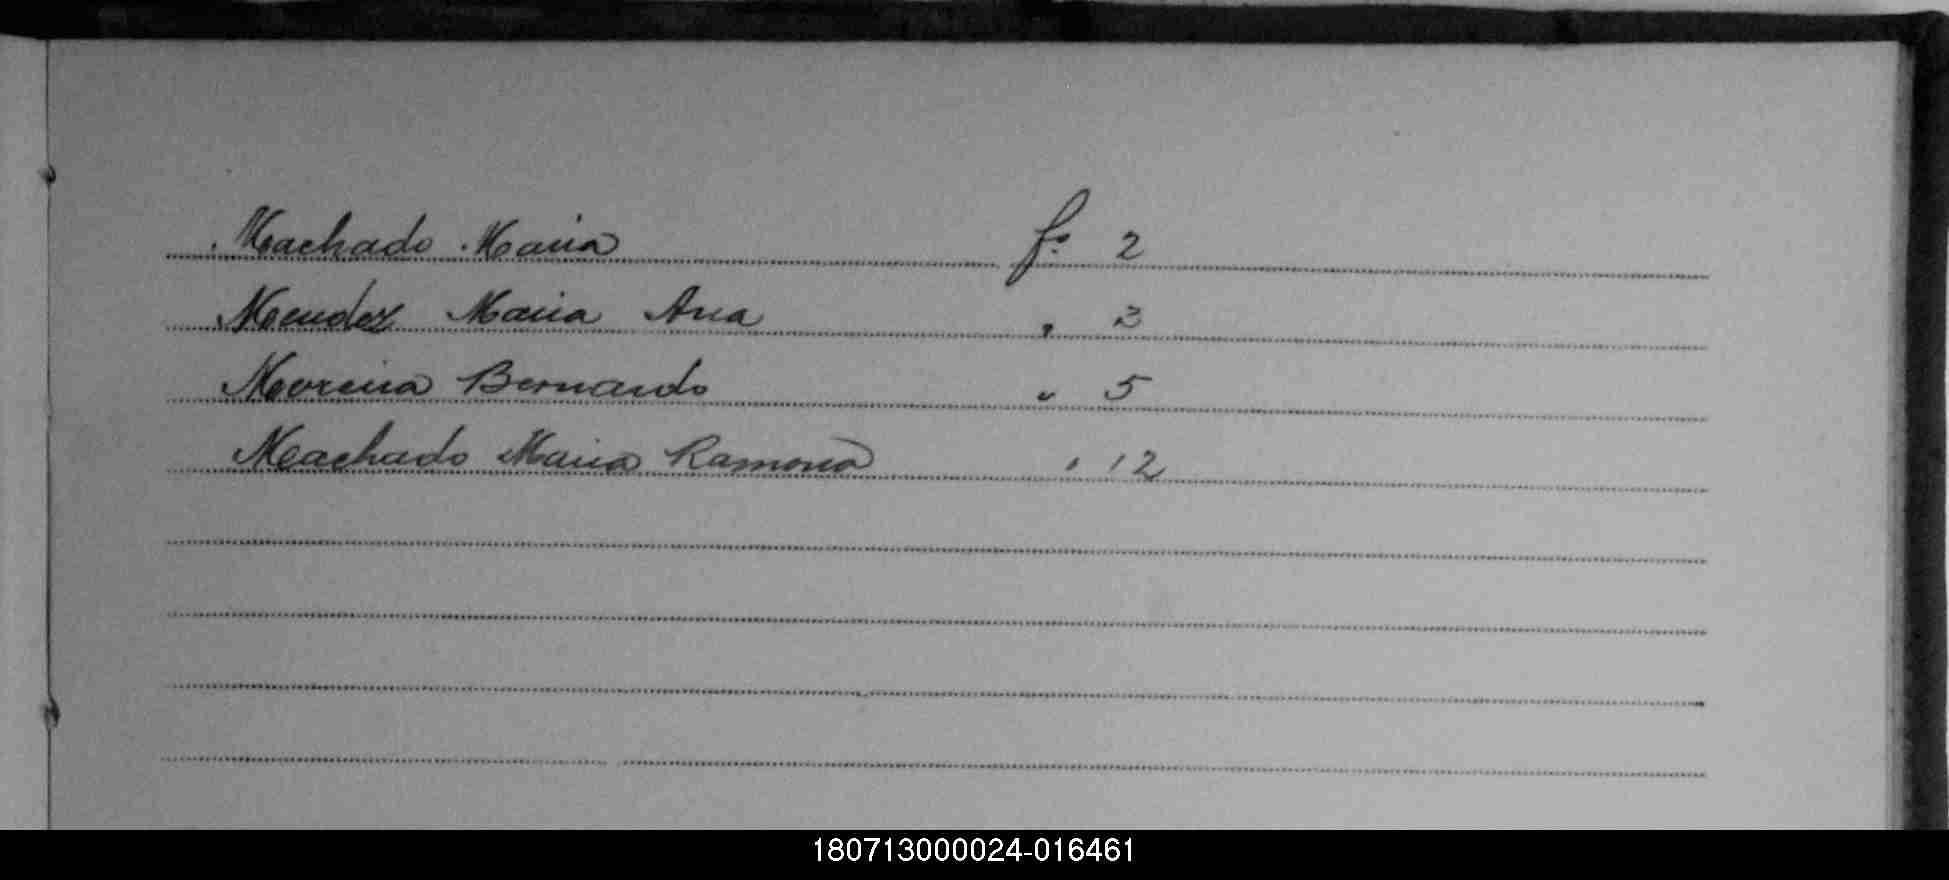 Machado Maria fs 2
Mendez Maria Ana " 3
Moreira Bernardo " 5
Machado Maria Ramona " 12
180713000024-016461